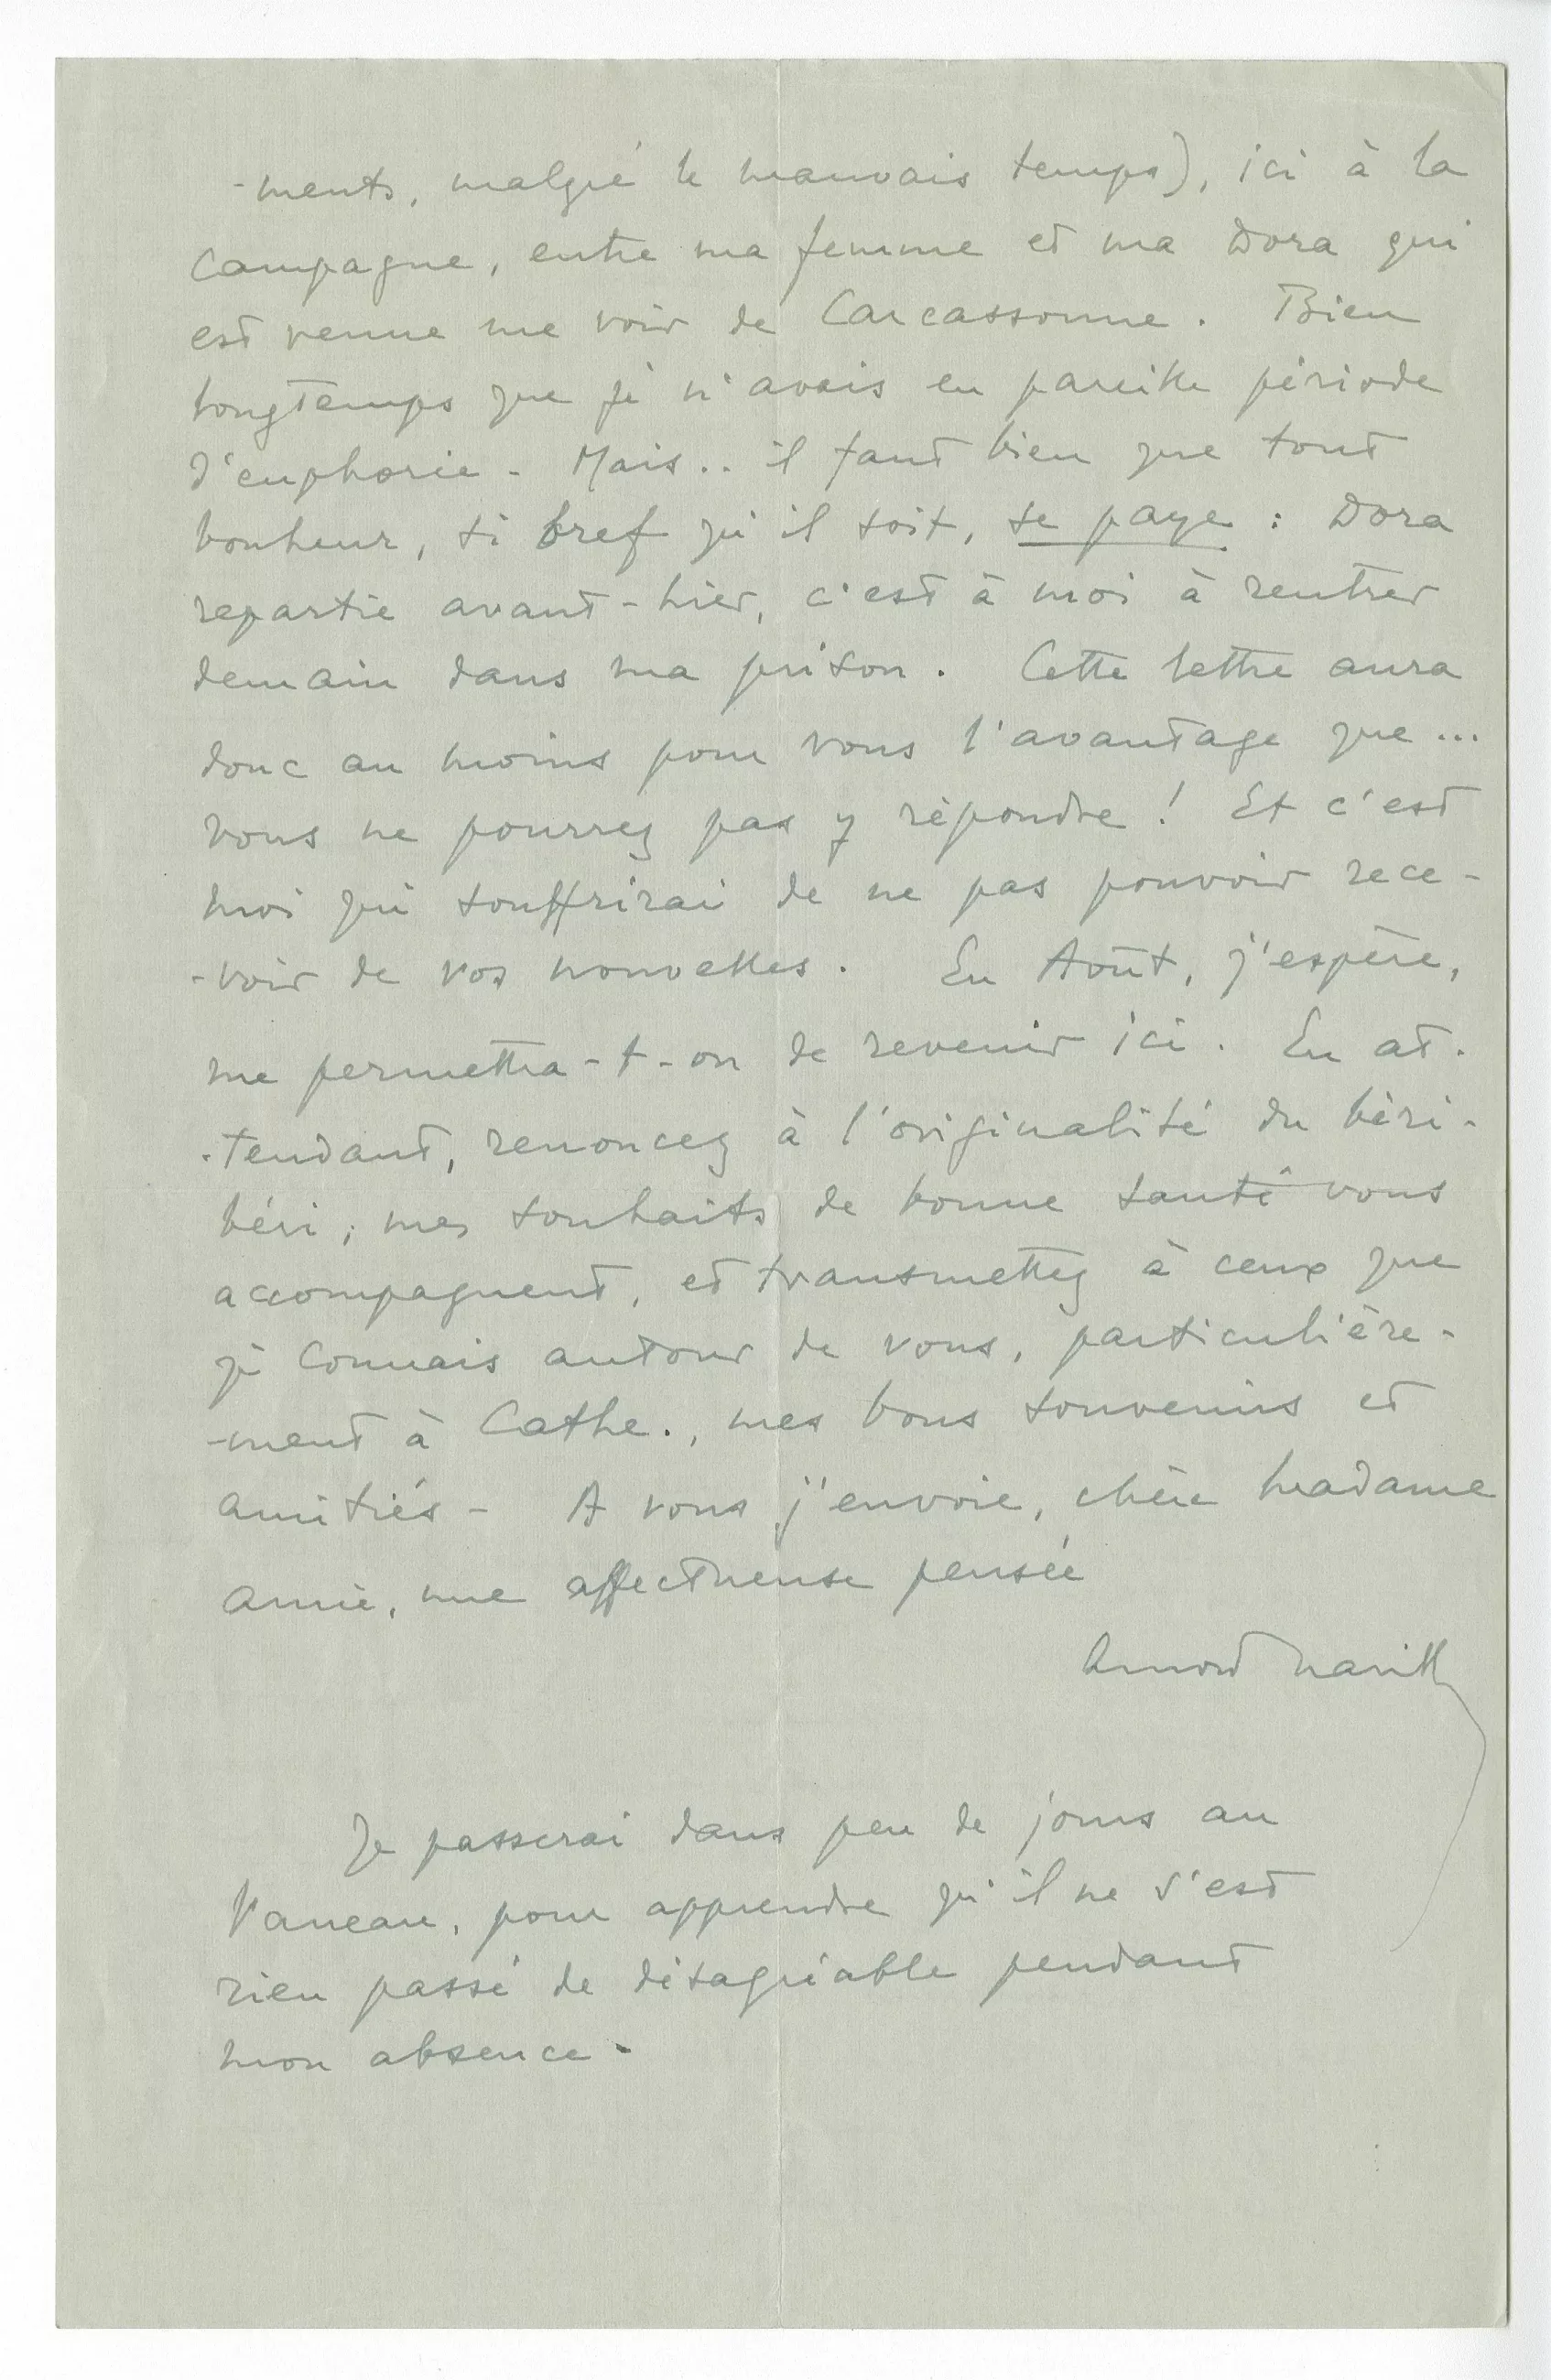 -ments, malgré le mauvais temps), ici à la
campagne, entre ma femme et ma Dora qui
est venue me voir de Carcassonne. Bien
longtemps que je n'avais eu pareille période
d'euphorie - Mais.. il faut bien que tout
bonheur, si bref qu'il soit, se paye : Dora
repartie avant-hier, c'est à moi à rentrer
demain dans ma prison. Cette lettre aura
donc au moins pour vous l'avantage que ...
vous ne pourrez pas y répondre ! Et c'est
moi qui souffrirai de ne pas pouvoir rece-
-voir de vos nouvelles. En Août, j'espère,
me permettra-t-on de revenir ici. En at-
-tendant, renoncez à l'originalité du béri-
béri ; mes souhaits de bonne santé vous
accompagnent, et transmettez à ceux que
je connais autour de vous, particulière-
-ment à Cathe., mes bons souvenirs et
amitiés - A vous j'envoie, chère Madame
amie, une affectueuse pensée
Arnold Naville
Je passerai dans peu de jours au
Vaneau, pour apprendre qu'il ne s'est
rien passé de désagréable pendant
mon absence -